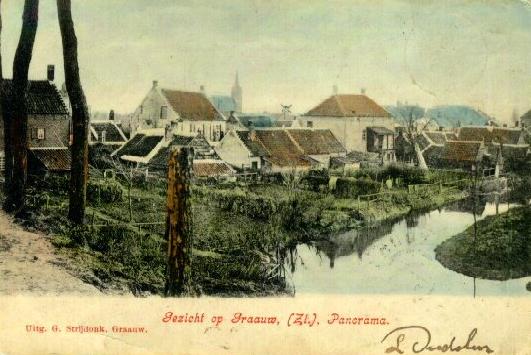 Gezicht op Graauw, (Zl.), Panorama.
Uitg. G. Strijdonk, Graauw.